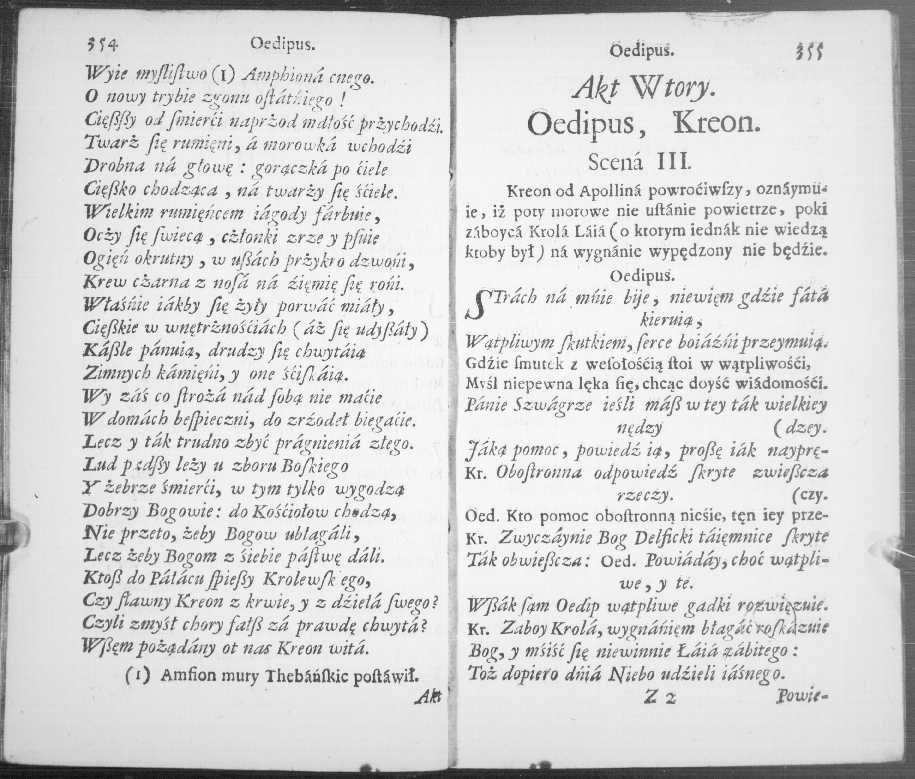 354 Oedipus.
Wyie myſliſtwo (1) Amphioná cnego.
O nowy trybie zgonu oſtátńiego !
Cięſzſzy od ſmierći naprżod mdłość przychodźi.
Twarż ſię rumięni, á morowká wchodźi
Drobna ná głowę : gorączká po ćiele
Cięſzko chodząca , ná twarży ſię śćiele.
Wielkim rumięńcem iágody fárbuie,
Oczy ſię ſwiecą , członki zrze y pſuie
Ogięń okrutny , w uſzách przykro dzwońi,
Krew czarna z noſá ná źięmię ſię rońi.
Właśńie iákby ſię żyły porwáć miáły,
Cięſzkie w wnętrżnośćiách ( áż ſię udyſzáły )
Káſzle pánuią, drudzy ſię chwytáią
Zimnych kámięńi, y one śćiſkáią.
Wy záś co ſtrożá nád ſobą nie maćie
W domách beſpieczni, do zrźodeł biegaćie.
Lecz y ták trudno zbyć prágnieniá złego.
Lud padſzy leży u zboru Boſkiego
Y żebrze śmierći, w tym tylko wygodzą
Dobrzy Bogowie: do Kośćiołow chodzą,
Nie przeto, żeby Bogow ubłagáli,
Lecz żeby Bogom z śiebie páſtwę dáli.
Ktoſz do Páłácu ſpieſzy Krolewſkego,
Czy ſławny Kreon z krwie, y z dźiełá ſwego?
Czyli zmyśł chory fałſz zá prawdę chwytá?
Wſzęm pożądány ot nas Kreon witá.
(1) Amfion mury Thebáńſkie poſtáwił.
Akt
Oedipus. 355
Akt Wtory.
Oedipus, Kreon.
Scená III.
Kreon od Apolliná powroćiwſzy, oznáymu-
ie, iż poty morowe nie uſtánie powietrze, poki
záboycá Krolá Láiá ( o ktorym iednák nie wiedzą
ktoby był ) ná wygnánie wypędzony nie będźie.
Oedipus.
STrách ná mńie bije, niewięm gdźie fátá
kieruią,
Wątpliwym ſkutkiem, ſerce boiáźńi przeymuią.
Gdźie ſmutek z weſołośćią ſtoi w wątpliwośći,
Myśl niepewna lęka ſię, chcąc doyść wiádomośći.
Pánie Szwágrze ieśli máſz w tey ták wielkiey
nędzy (dzey.
Jáką pomoc, powiedź ią, proſzę iák nayprę-
Kr. Oboſtronna odpowiedź ſkryte zwieſzcza
rzeczy. (czy.
Oed. Kto pomoc oboſtronną nieśie, tęn iey prze-
Kr. Zwyczáynie Bog Delficki táięmnice ſkryte
Ták obwieſzcza: Oed. Powiádáy, choć wątpli-
we, y te.
Wſzák ſąm Oedip wątpliwe gadki rozwięzuie.
Kr. Zaboy Krolá, wygnánięm błagáć roſkázuie
Bog, y mśiść ſię niewinnie Łáiá zábitego :
Toż dopiero dńiá Niebo udźieli iáśnego.
Z 2 Powie-